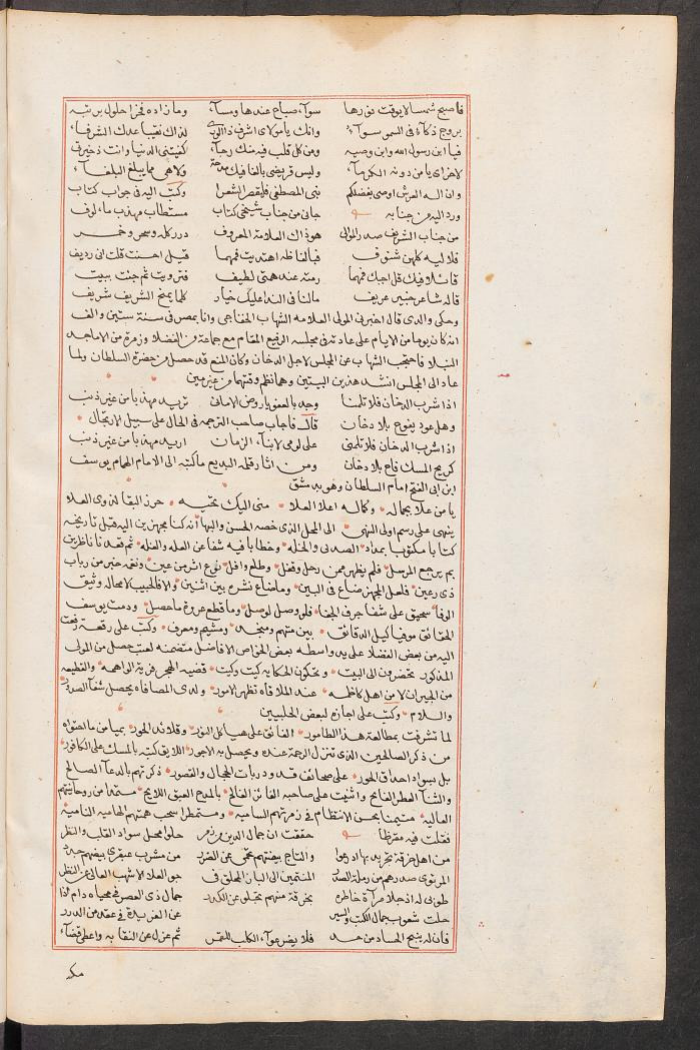 فاصبح شمسا لا يوقت نورها سوآء صباح عندها ومسآء وما زاده فخرا حلول برتبه
بروج ذكآء في السمو سوآء وانك يا من لاى اشرف ذا الورى لذاك نقيبا عدك الشرفآء
فيا ابن رسول الله وابن وصيه ومن كل قلب فيه منك رجآء كفيتنى الدنيا وانت ذخيرتى
لاخراى يا من دونه الكرمآء وليس قريضى بالغا فيك مدحة ولا هى مما يبلغ البلغآء
وان اله العرش اوصى بفضلكم بنى المصطفى فليقصر الشعرا وكتب اليه فى جواب كتاب
ورد اليه من جنابه جانى من جناب شيخى كتاب مستطاب مهذب مالوف
من جناب الشريف صدر الموالى هو ذاك العلامة المعروف درر كله وسحر وخمر
فلاليه كلهن شنوف فبالفاظه اهتديت فمهما قيل احسنت قلت انى رديف
قائلا فيك قل اجبك فمهما رمته عندهتى لطيف فترويت ثم جئت ببيت
قاله شاعر خبير عريف مالنا فى الندا عليك خيار كلما يمنح الشريف شريف
وحكى والدى قال اخبرنى المولى العلامه الشهاب الخفاجى وانا بمصر فى سنة ستين والف
انه كان يوما من الايام على عادته فى مجلسه الرفيع المقام مع جماعة من الفضلا وزمرة من الاماجد
النبلا فاحتجب الشهاب عن المجلس لاجل الدخان وكان المنع قد حصل من حضرة السلطان ولما
عاد الى المجلس انشد هذين البيتين وهما نظم وقتهما من غير مين
اذا شرب الدخان فلا تلمنا وجد بالعفو يا روض الامانى تريد مهذبا من غير ذنب
وهل عود يفوح بلا دخان قال فاجاب صاحب الترجمه فى الحال على سبيل الارتجال
اذا شرب الدخان فلا تلمنى على لومى لابنآء الزمان اريد مهذبا من غير ذنب
كريح المسك فاح بلا دخان ومن اثار قلمه البديع ما كتبه الى الامام الهمام يوسف
ابن ابى الفتح امام السلطان وهو بدمشق
يا من علا بجماله وكماله اعلا العلا منى اليك تحيه حرز البقا لذوى العلا
ينهى على رسم اولى النهى الى المحل الذى خصه الحسن والبها انه كنا مجهزين اليه قبل تاريخه
كتابا مكتوبا بمداد الصدق والخله وخطابا فيه شفا عن العله والغله ثم قعدنا ناظرين
بم يرجع المرسل فلم يظهر ممن رحل وقفل وطلع وافل نوع اثر من عين ونفحة خبر من رباب
ذى رعين فلعل المجهز ضاع فى البين وما ضاع نشره بين اثنين والا فالحبيب لا محاله وثيق
الوفا سحيق على شفا جرف الجفا فلو وصل لوصل وما قطع عروة ما حصل ودمت يوسف
الحقائق موفيا كيل الدقائق بين متهم ومنجد ومشيم ومعرف وكتب على رقعة رفعت
اليه من بعض الفضلا على يد واسطه بعض الخواص الافاضل متضمنه لعتب حصل من المولى
المذكور تحضرون الى البيت وتحكون الحكايه كيت وكيت قضيه الهجر فرية الواهمه والقطيعه
من الجيران لا من اهل كاظمه عند الملاقاه تظهر الامور ولدى المصافاه يحصل شفآ الصدور
والسلام وكتب على اجازه لبعض الحلبيين
لما تشرفت بمطالعة هذا الطامور الفائق على هياكل النور وقلائد الحور بميامن ما احتواه
من ذكر الصالحين الذى تنزل الرحمة عنده ويحصل به الاجور اللايق كتبه بالمسك على الكافور
بل بسواد احداق الحور على صحائف خدود ربات الحجال والقصور ذكرتهم بالدعآ الصالح
والثنآ العطر الفايح واثنيت على صاحبه الفائز الفالح بالمدح العبق اللايح مستمدا من روحانيتهم
العاليه متيمنا بحسن الانتظام فى زمرتهم الساميه ومستمطرا سحب همتهم الهاميه الناميه
فقلت فيه مقرظا حققت ان جمال الدين مرزمر حلوا محل سواد القلب والنظر
من اهل خرقة تجريد بها دعوا والتاج بيعتهم تحمى عن الضرر من مشرب عبقرى بيعتهم
المرتوى صدرهم من رملة الصدر المنتمين الى الباز المحلق فى جو العلا الاشهب العالى عن النظر
طوبى له اذ جلا مرآة خاطره بخرقة منهم تجلو عن الكدر جمال ذى العصر فى محياه دام اذا
حلت شعوب جمال الكتب والسير عن الفريدة فى عقد من الدرر
فان له ينبح الحساد من حسد فلا يضر عوآء الكلب للقمر ثم عزل عن النقابه واعطى قضآء
مكه